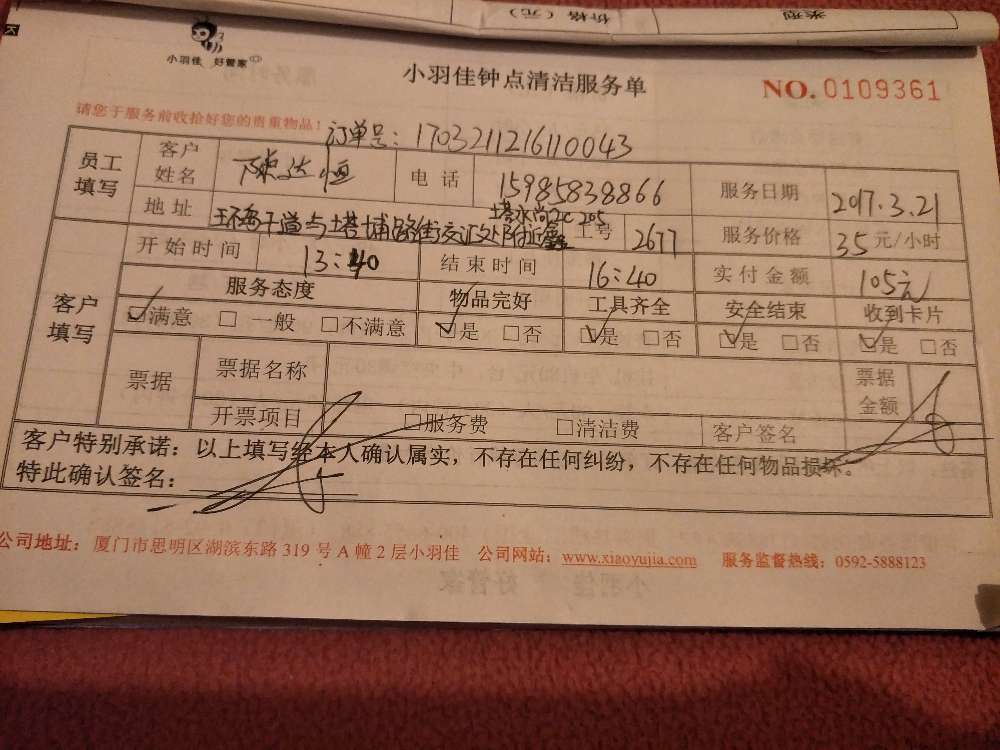 价格（元） 类型
小羽佳 好管家
小羽佳钟点清洁服务单
NO. 0109361
请您于服务前收拾好您的贵重物品！
订单号：1703211216110043
员工填写 客户姓名 陈达恒 电话 15985838866 服务日期 2017.3.21
地址 环岛干道与塔埔路街交汇处附近 塔水尚2C 205 工号 2677 服务价格 35元/小时
客户填写 开始时间 13:40 结束时间 16:40 实付金额 105元
服务态度 物品完好 工具齐全 安全结束 收到卡片
☑满意 □一般 □不满意 ☑是 □否 ☑是 □否 ☑是 □否 ☑是 □否
票据 票据名称 票据金额
开票项目 □服务费 □清洁费 客户签名
客户特别承诺：以上填写经本人确认属实，不存在任何纠纷，不存在任何物品损坏。
特此确认签名：
公司地址：厦门市思明区湖滨东路 319 号 A 幢 2 层小羽佳 公司网站：www.xiaoyujia.com 服务监督热线：0592-5888123